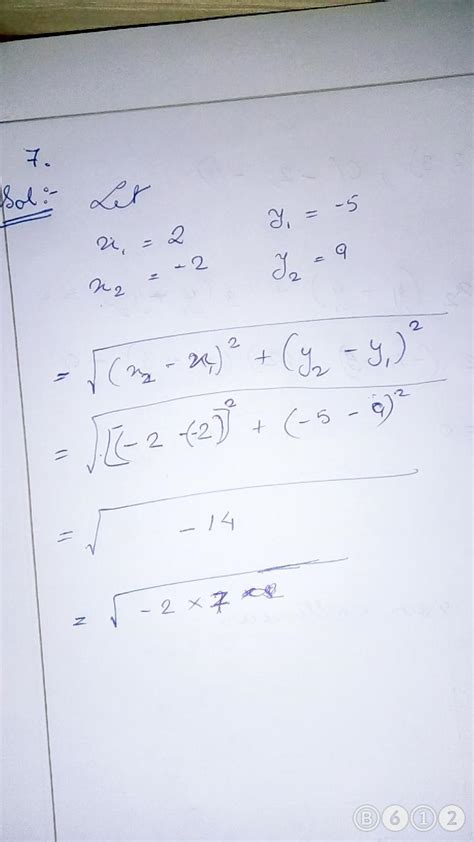 7.
Sol:- Let
x₁ = 2 y₁ = -5
x₂ = -2 y₂ = 9
= √(x₂ - x₁)² + (y₂ - y₁)²
= √[(-2 -(-2)]² + (-5 - 9)²
= √ -14
= √-2 × 7
B612